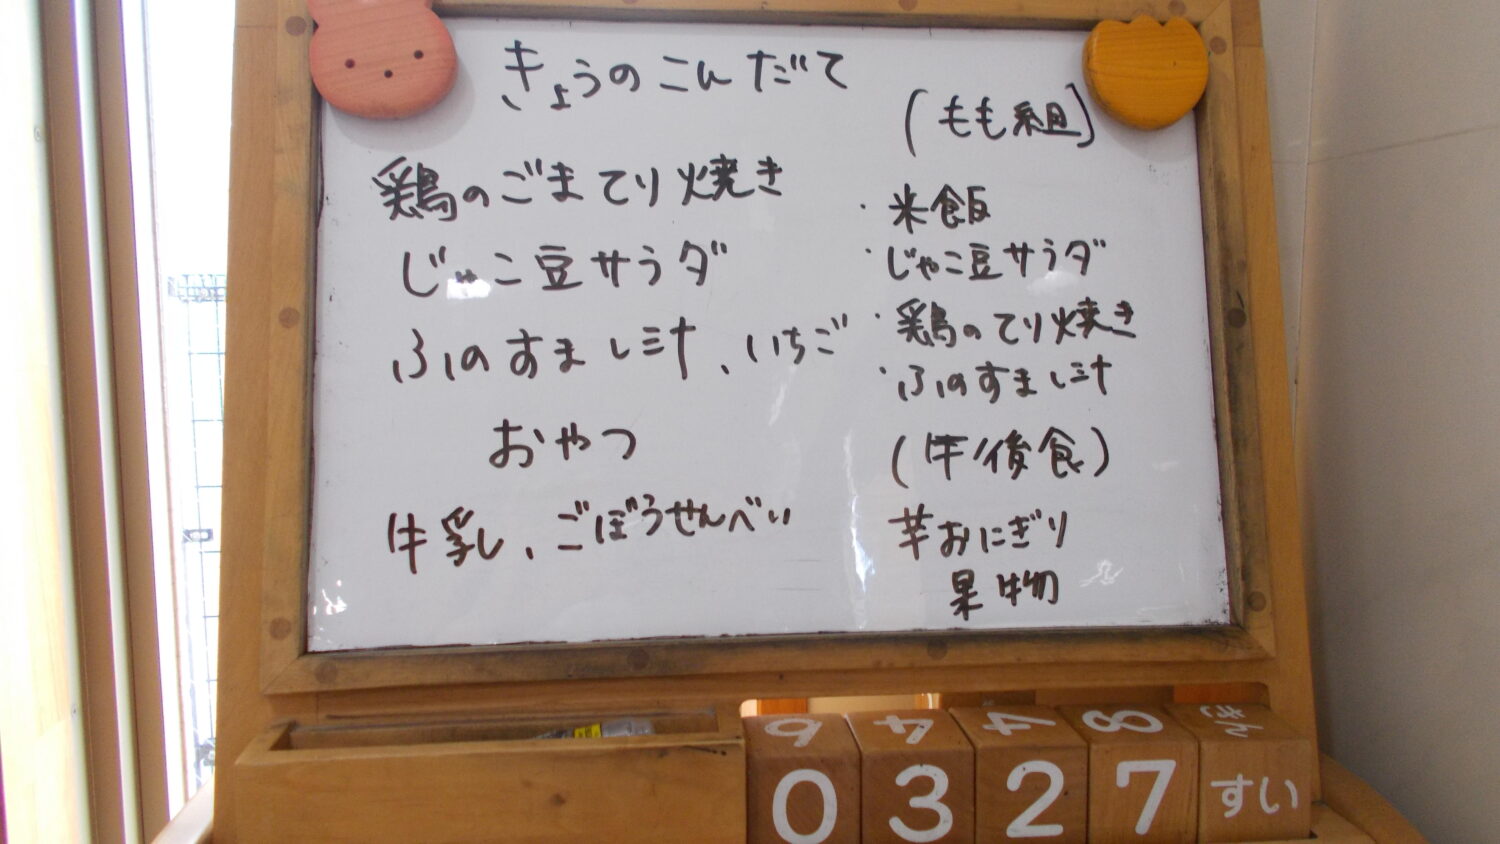 きょうのこんだて
鶏のごまてり焼き
じゃこ豆サラダ
ふのすまし汁、いちご
おやつ
牛乳、ごぼうせんべい
(もも組)
・米飯
・じゃこ豆サラダ
・鶏のてり焼き
・ふのすまし汁
(午後食)
芋おにぎり
果物
9 4 4 8 きん
0 3 2 7 すい